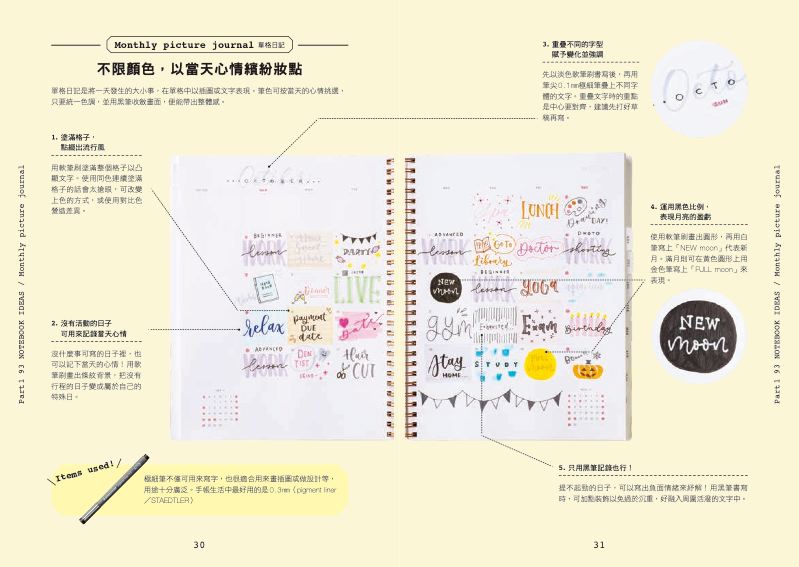 Monthly picture journal 單格日記
不限顏色，以當天心情繽紛妝點
單格日記是將一天發生的大小事，在單格中以插圖或文字表現。筆色可按當天的心情挑選，
只要統一色調，並用黑筆收斂畫面，便能帶出整體感。
1. 塗滿格子，
點綴出流行風
用軟筆刷塗滿整個格子以凸
顯文字。使用同色連續塗滿
格子的話會太搶眼，可改變
上色的方式，或使用對比色
營造差異。
2. 沒有活動的日子
可用來記錄當天心情
沒什麼事可寫的日子裡，也
可以記下當天的心情！用軟
筆刷畫出條紋背景，把沒有
行程的日子變成屬於自己的
特殊日。
Part1 93 NOTEBOOK IDEAS / Monthly picture journal
OCTOBER
BEGINNER
WORK
lesson
PARTY
Dinner
LIVE
relax
payment
DUE
date
ADVANCED
WORK
lesson
DENTIST
Hair
CUT
Items used!
極細筆不僅可用來寫字，也很適合用來畫插圖或做設計等，
用途十分廣泛。手帳生活中最好用的是0.3mm（pigment liner
／STAEDTLER）
30
3. 重疊不同的字型
賦予變化並強調
先以淡色軟筆刷書寫後，再用
筆尖0.1mm極細筆疊上不同字
體的文字。重疊文字時的重點
是中心要對齊，建議先打好草
稿再寫。
Octo
OCTO
LUNCH
Drawing
DAY!
ADVANCED
WORK
lesson
Go To
Library
Doctor
PHOTO
shooting
NEW
moon
BEGINNER
WORK
lesson
YOGA
gym
Exam
Birthday
Stay
HOME
STUDY
FULL
moon
4. 運用黑色比例，
表現月亮的盈虧
使用軟筆刷畫出圓形，再用白
筆寫上「NEW moon」代表新
月。滿月則可在黃色圓形上用
金色筆寫上「FULL moon」來
表現。
NEW
moon
5. 只用黑筆記錄也行！
提不起勁的日子，可以寫出負面情緒來紓解！用黑筆書寫
時，可加點裝飾以免過於沉重，好融入周圍活潑的文字中。
Part1 93 NOTEBOOK IDEAS / Monthly picture journal
31